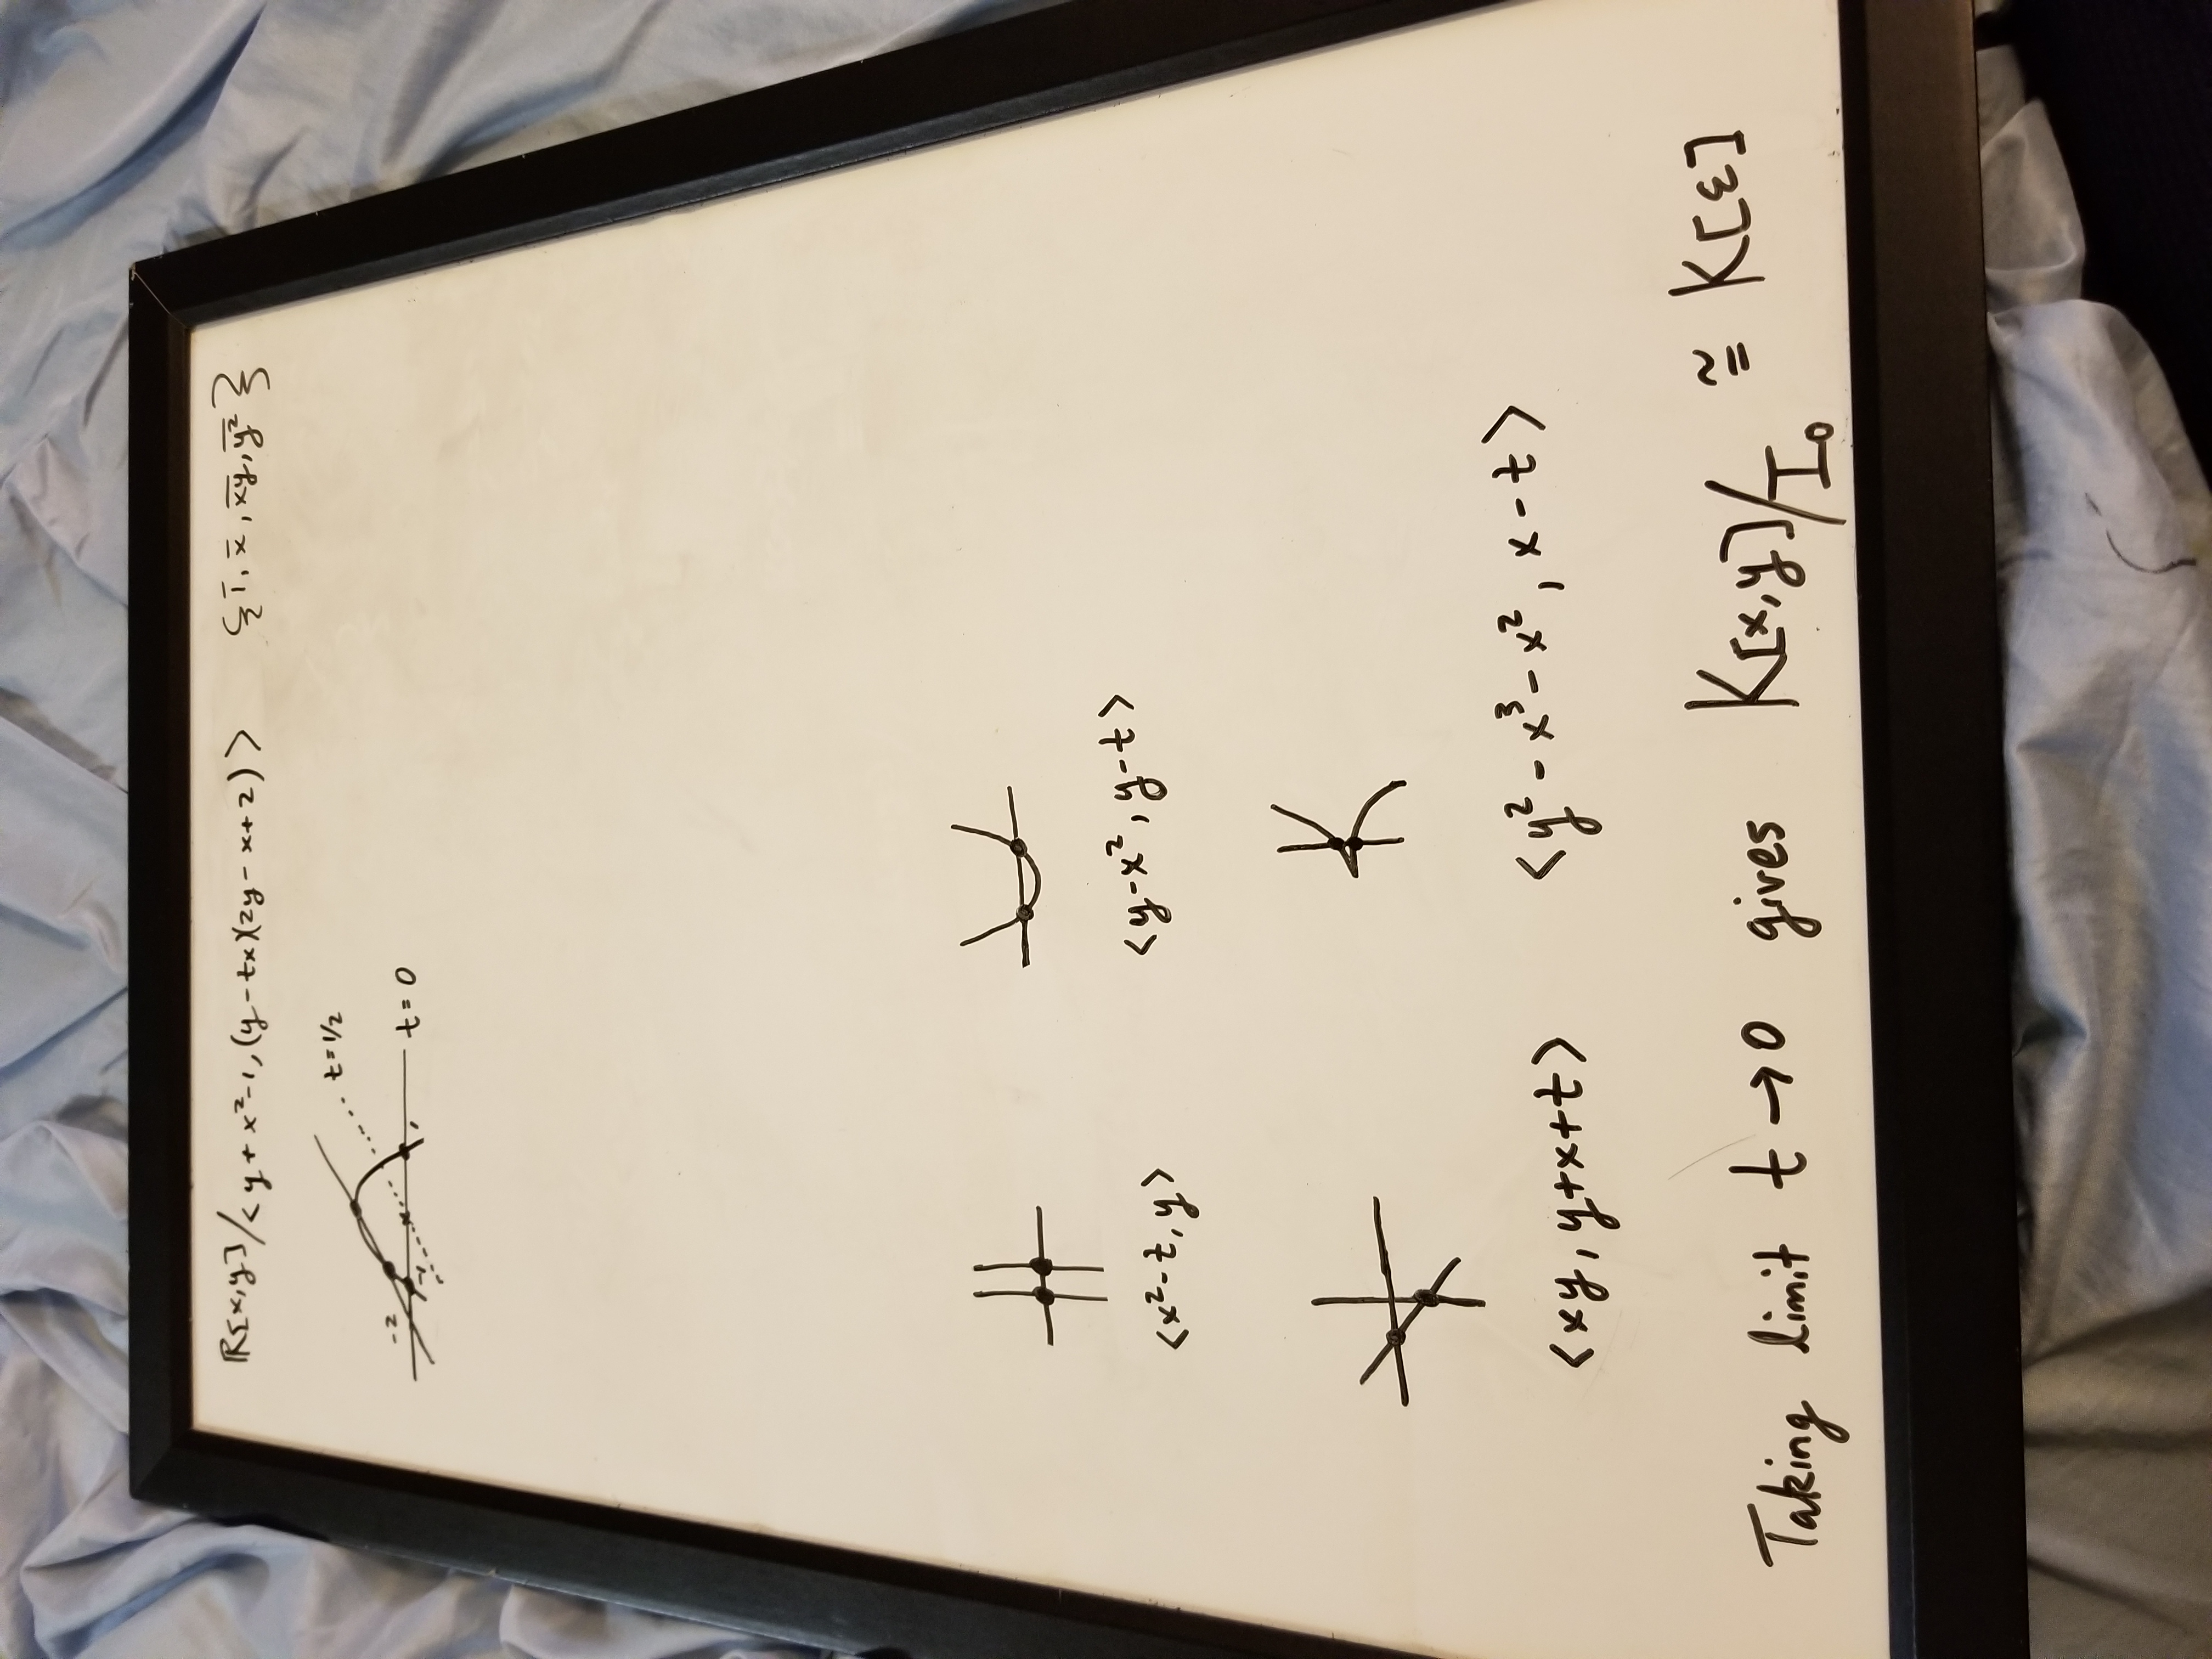 ℝ[x,y]/<y+x²-1,(y-tx)(2y-x+2)> {1̅, x̅, x̅y̅, y̅²}
t=1/2
-2
-1 1 t=0
<x²-t,y> <y-x²,y-t>
<xy,y+x+t> <y²-x³-x²,x-t>
Taking limit t→0 gives K[x,y]/I₀ ≅ K[ε]